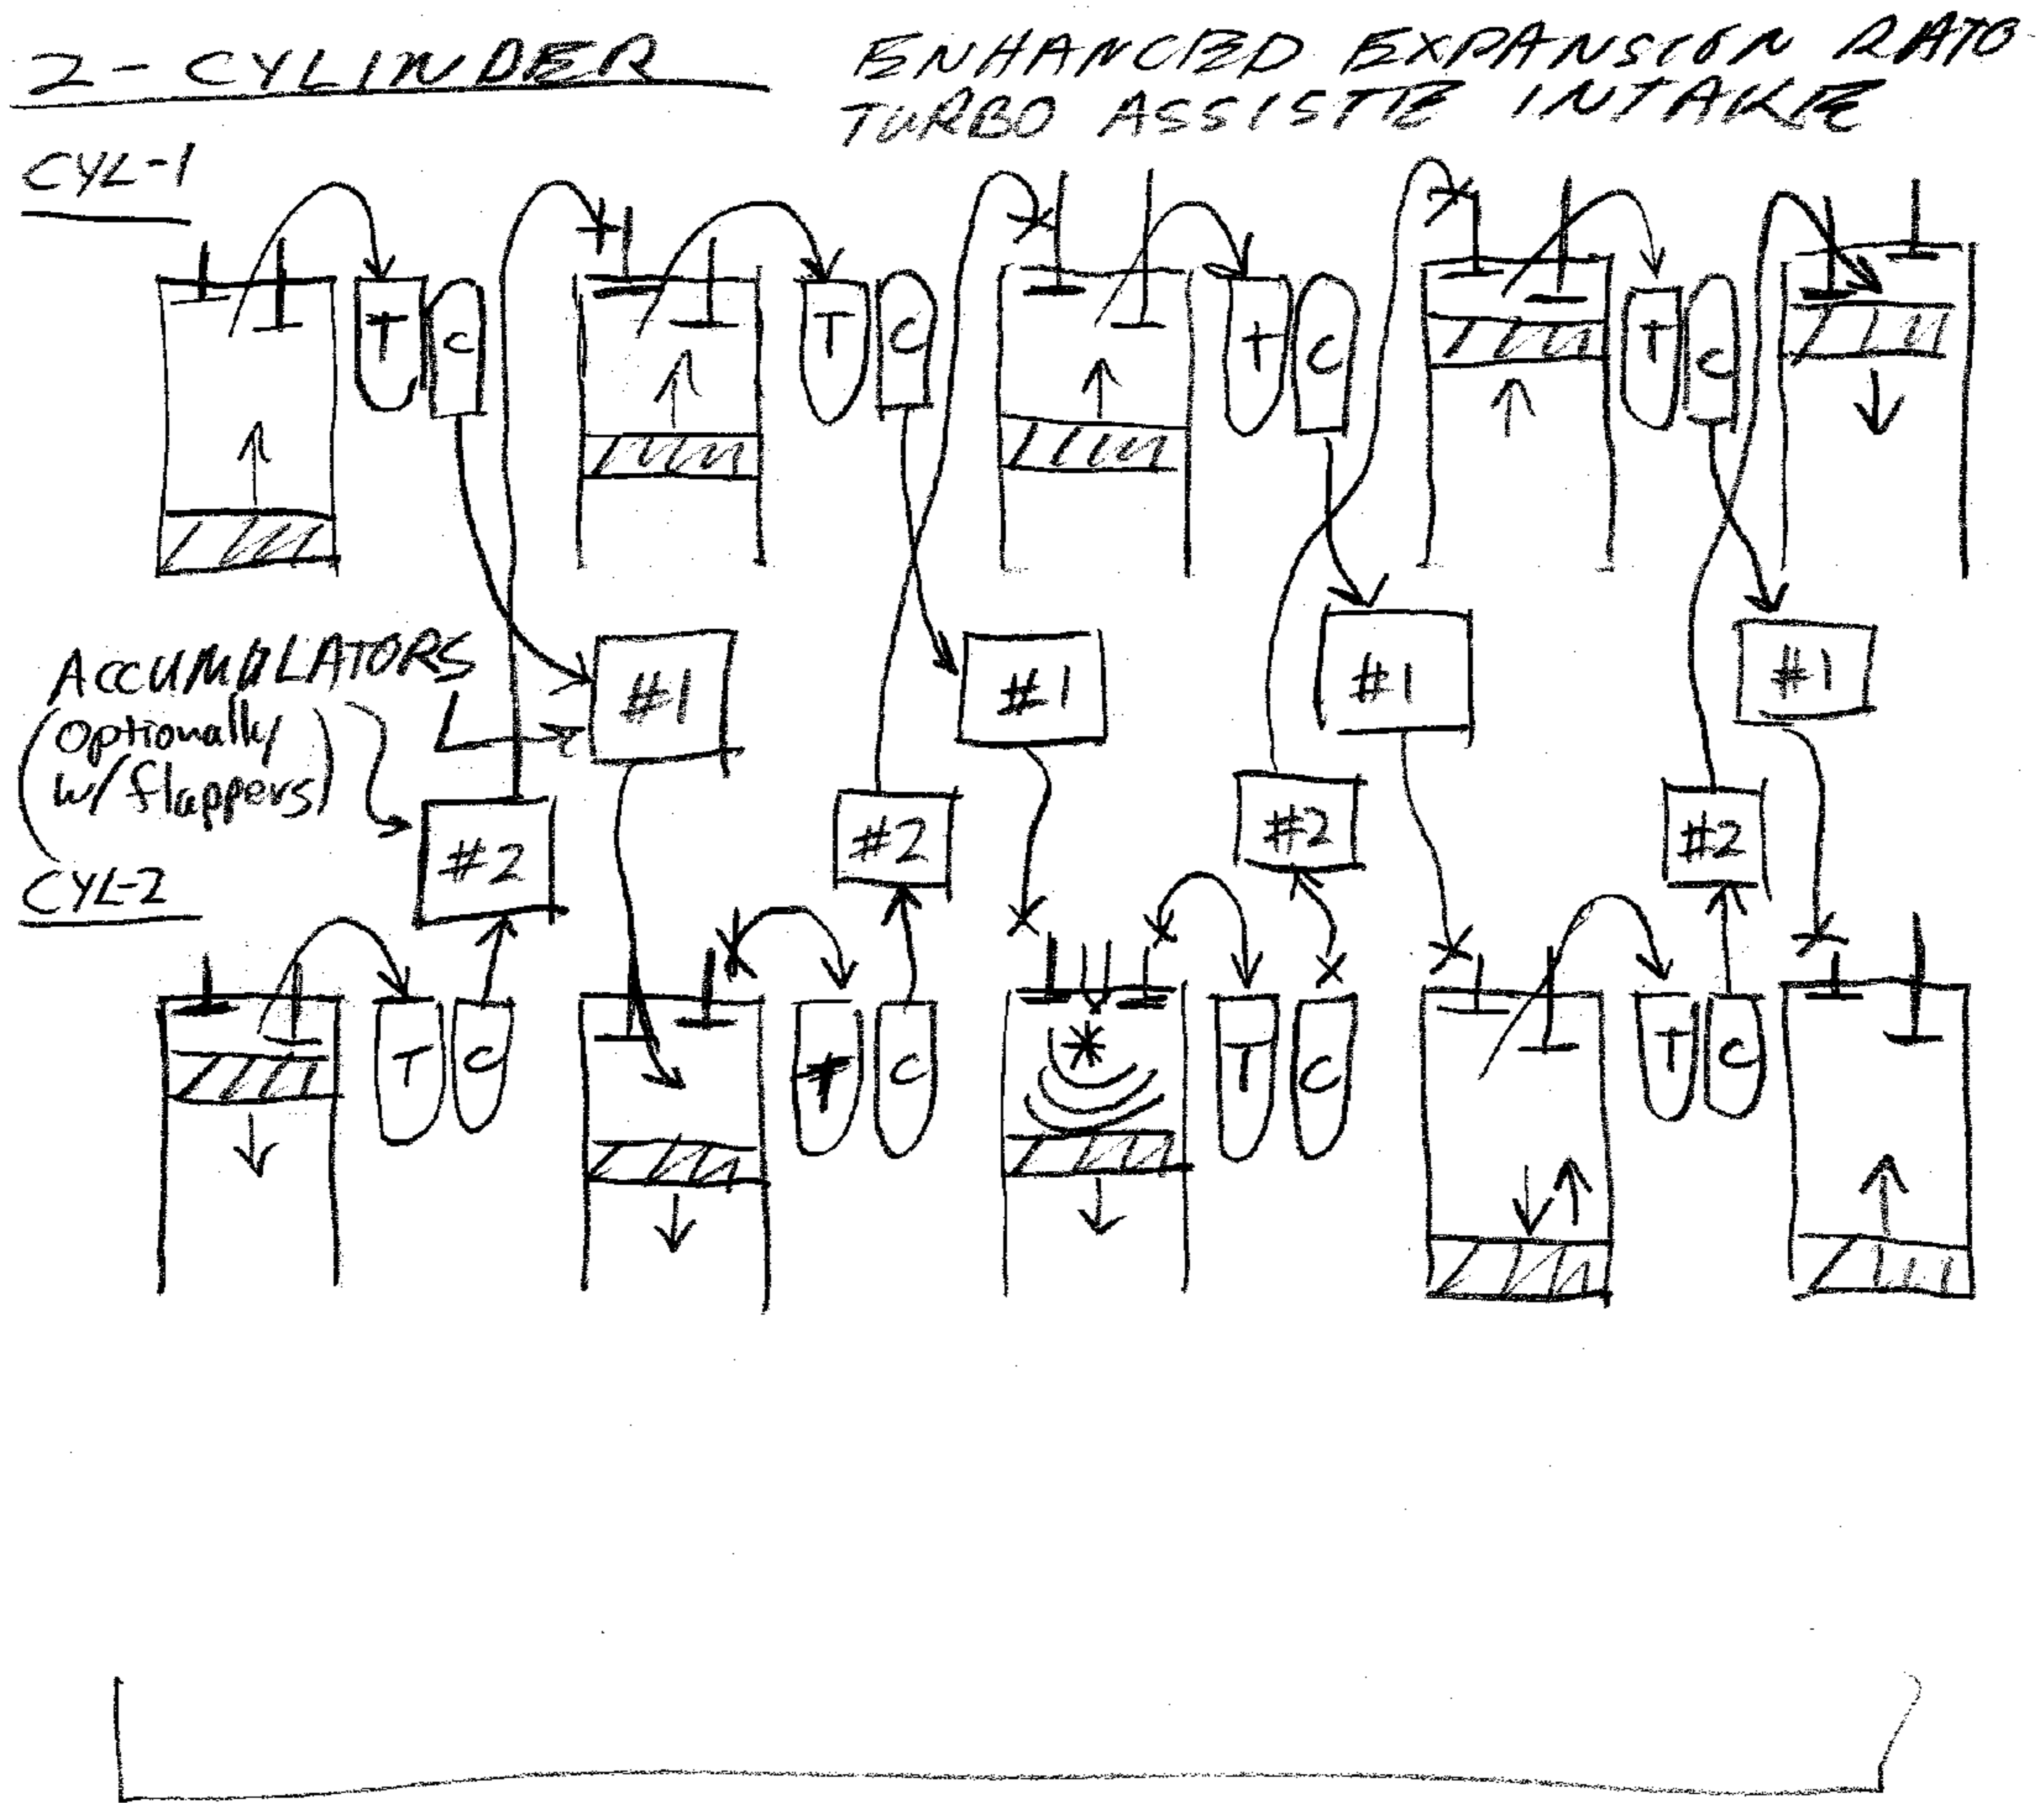 2-CYLINDER
ENHANCED EXPANSION RATO
TURBO ASSISTE INTAKE
CYL-1
T C T C T C T C
ACCUMULATORS
(Optionally
w/ flappers)
#1 #1 #1 #1
#2 #2 #2 #2
CYL-2
T C T C T C T C